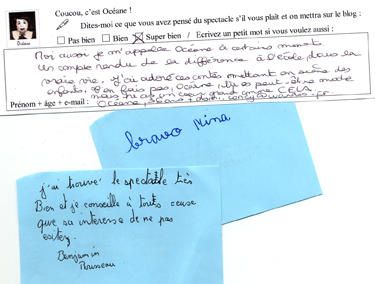 Coucou, c'est Océane !
Dites-moi ce que vous avez pensé du spectacle s'il vous plaît et on mettra sur le blog :
Pas bien Bien Super bien / Ecrivez un petit mot si vous voulez aussi :
Océane
Moi aussi je m'appelle Océane à certains moments
Un compte rendu de la différence à l'école, dans la
vraie vie. J'ai adoré ces contes mettant en scène des
enfants.
mais
CELA
Prénom + âge + e-mail : Océane,
bravo Mina
j'ai trouvé le spectacle très
Bien et je conseille à touts ceuse
que sa interesse de ne pas
Benjamin
Rousseau